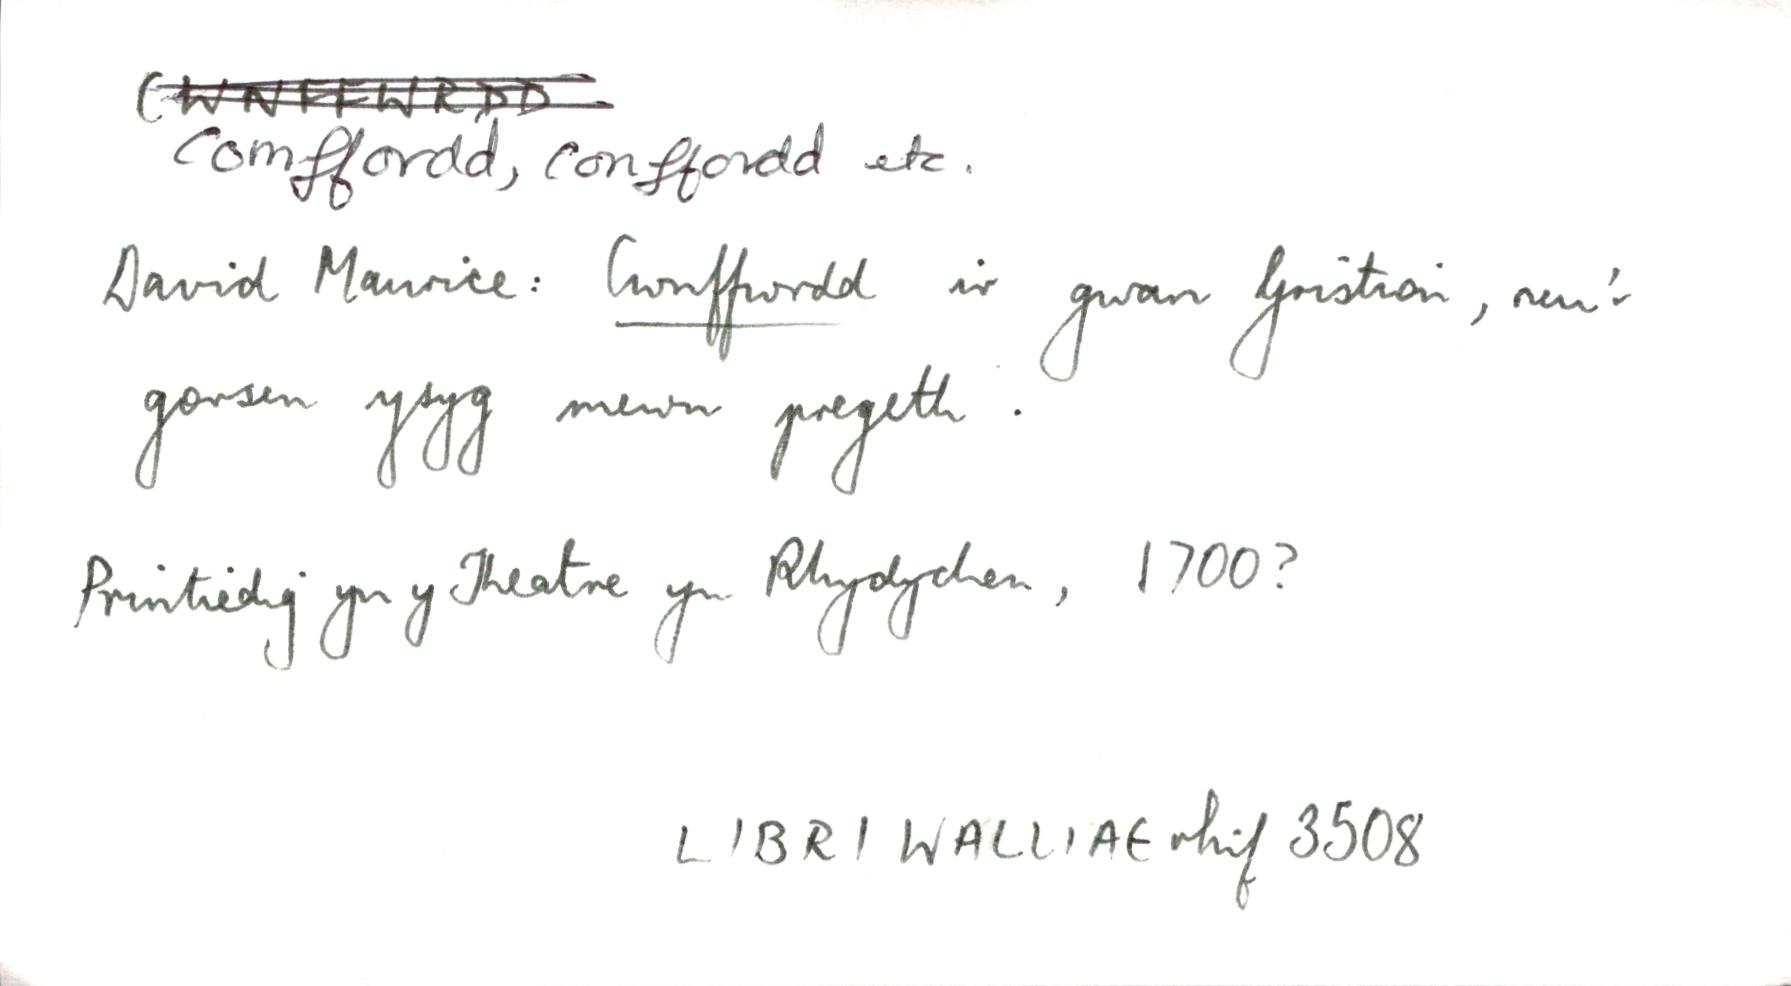 CWNFFWRDD
Comffordd, conffordd etc.
David Maurice: Cwnffwrdd ir gwan Gristion, neu'r
gorsen ysyg mewn pregeth.
Printiedig yn y Theatre yn Rhydychen, 1700?
LIBRI WALLIAE rhif 3508